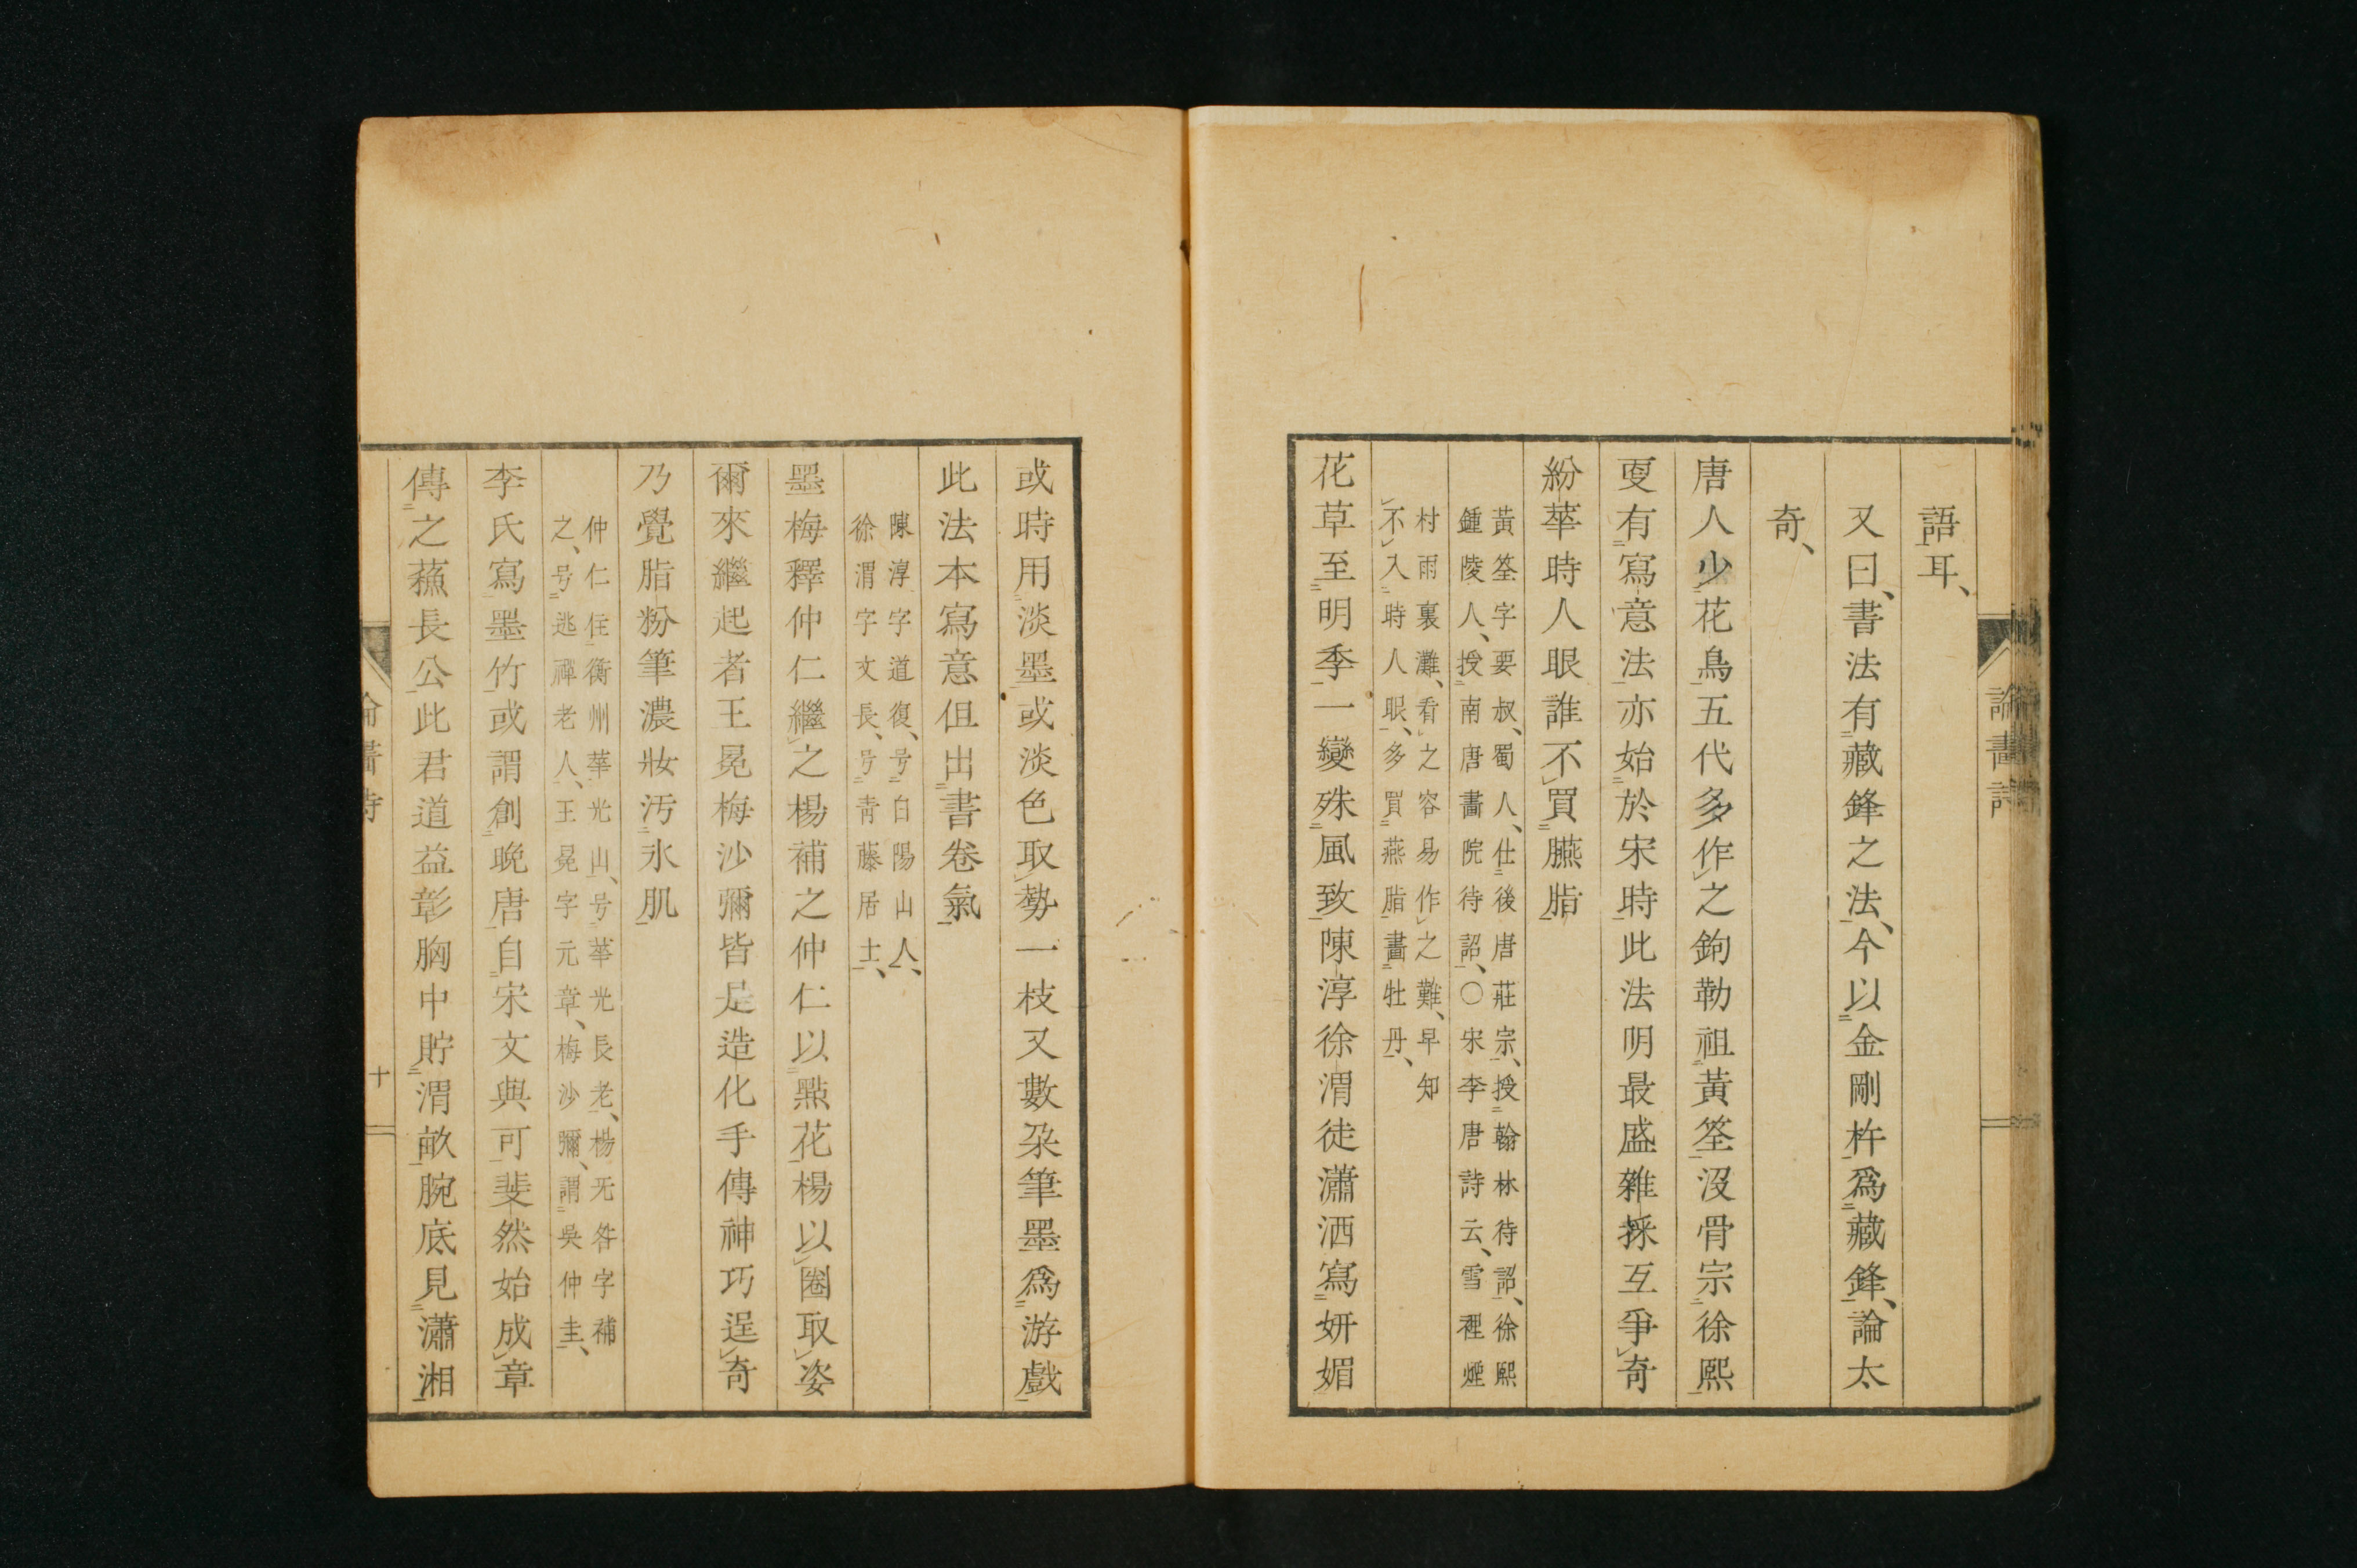 語耳、
又曰、書法有藏鋒之法、今以金剛杵爲藏鋒、論太
奇、
唐人少花鳥五代多作之鉤勒祖黃筌沒骨宗徐熙
更有寫意法亦始於宋時此法明最盛雜採互爭奇
紛華時人眼誰不買臙脂
黃筌字要叔、蜀人、仕後唐莊宗、授翰林待詔、徐熙
鍾陵人、授南唐畫院待詔、〇宋李唐詩云、雪裡煙
村雨裏灘、看之容易作之難、早知
不入時人眼、多買燕脂畫牡丹、
花草至明季一變殊風致陳淳徐渭徒瀟洒寫妍媚
論畫詩
或時用淡墨或淡色取勢一枝又數朶筆墨爲游戲
此法本寫意但出書卷氣
陳淳字道復、号白陽山人、
徐渭字文長、号靑藤居士、
墨梅釋仲仁繼之楊補之仲仁以點花楊以圈取姿
爾來繼起者王冕梅沙彌皆是造化手傳神巧逞奇
乃覺脂粉筆濃妝汚氷肌
仲仁住衡州華光山、号華光長老、楊无咎字補
之、号逃禪老人、王冕字元章、梅沙彌、謂吳仲圭、
李氏寫墨竹或謂創晩唐自宋文與可斐然始成章
傳之蘓長公此君道益彰胸中貯渭畝腕底見瀟湘
十